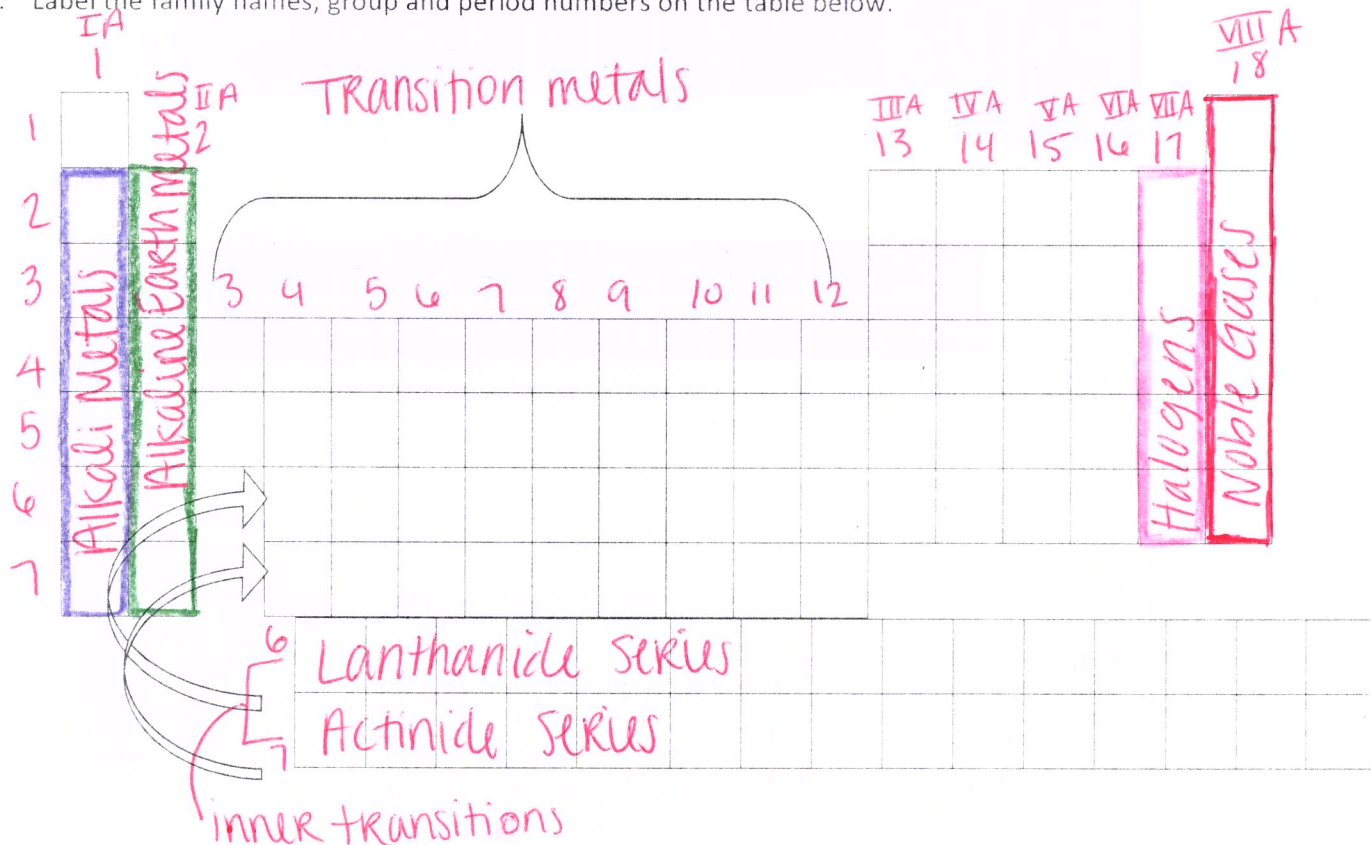 Label the family names, group and period numbers on the table below.
IA
1
VIII A
18
Transition metals
IIA
2
IIIA IVA VA VIA VIIA
13 14 15 16 17
1
2
3
4
5
6
7
3 4 5 6 7 8 9 10 11 12
Alkali Metals
Alkaline Earth Metals
Halogens
Noble Gases
6 Lanthanide Series
7 Actinide Series
inner transitions